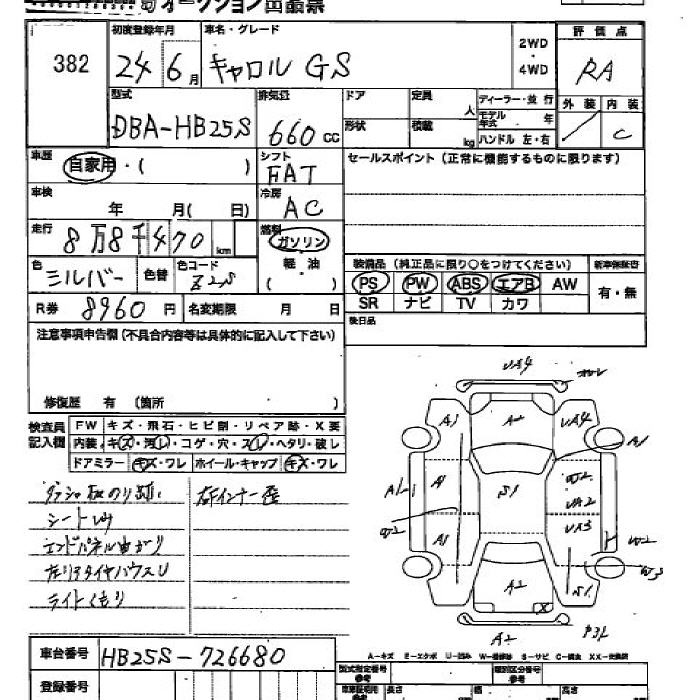 オークション出品票
382
初度登録年月
24年6月
車名・グレード
キャロル GS
2WD
・
4WD
評価点
RA
外装 内装
／ C
型式
DBA-HB25S
排気量
660 CC
ドア
形状
定員
人
積載
kg
ディーラー・並行
モデル年式 年
ハンドル 左・右
車歴
自家用・( )
シフト
FAT
セールスポイント(正常に機能するものに限ります)
車検
年 月( 日)
冷房
AC
走行
8万8千470 km
燃料
ガソリン
軽油
( )
色
シルバー
色替
色コード
Z2S
装備品 (純正品に限り○をつけてください)
新車保証書
PS PW ABS エアB AW
SR ナビ TV カワ
有・無
R券 8960 円
名変期限 月 日
後日品
注意事項申告欄(不具合内容等は具体的に記入して下さい)
修復歴 有 (箇所 )
検査員記入欄
FW キズ・飛石・ヒビ割・リペア跡・X要
内装 キズ・汚レ・コゲ・穴・スレ・ヘタリ・破レ
ドアミラー キズ・ワレ ホイール・キャップ キズ・ワレ
シート
エンドパネル曲がり
ライトくもり
右インナー歪
VA4
A1 A2 VA4
A1
A1 S1 W2
VA2
A1 VA3
W2
W3
A2 X S1
A2
A-キズ E-エクボ U-凹み W-補修跡 S-サビ C-腐食 XX-交換済
車台番号
HB25S-726680
登録番号
型式指定番号
参考
類別区分番号
参考
長さ 幅 高さ